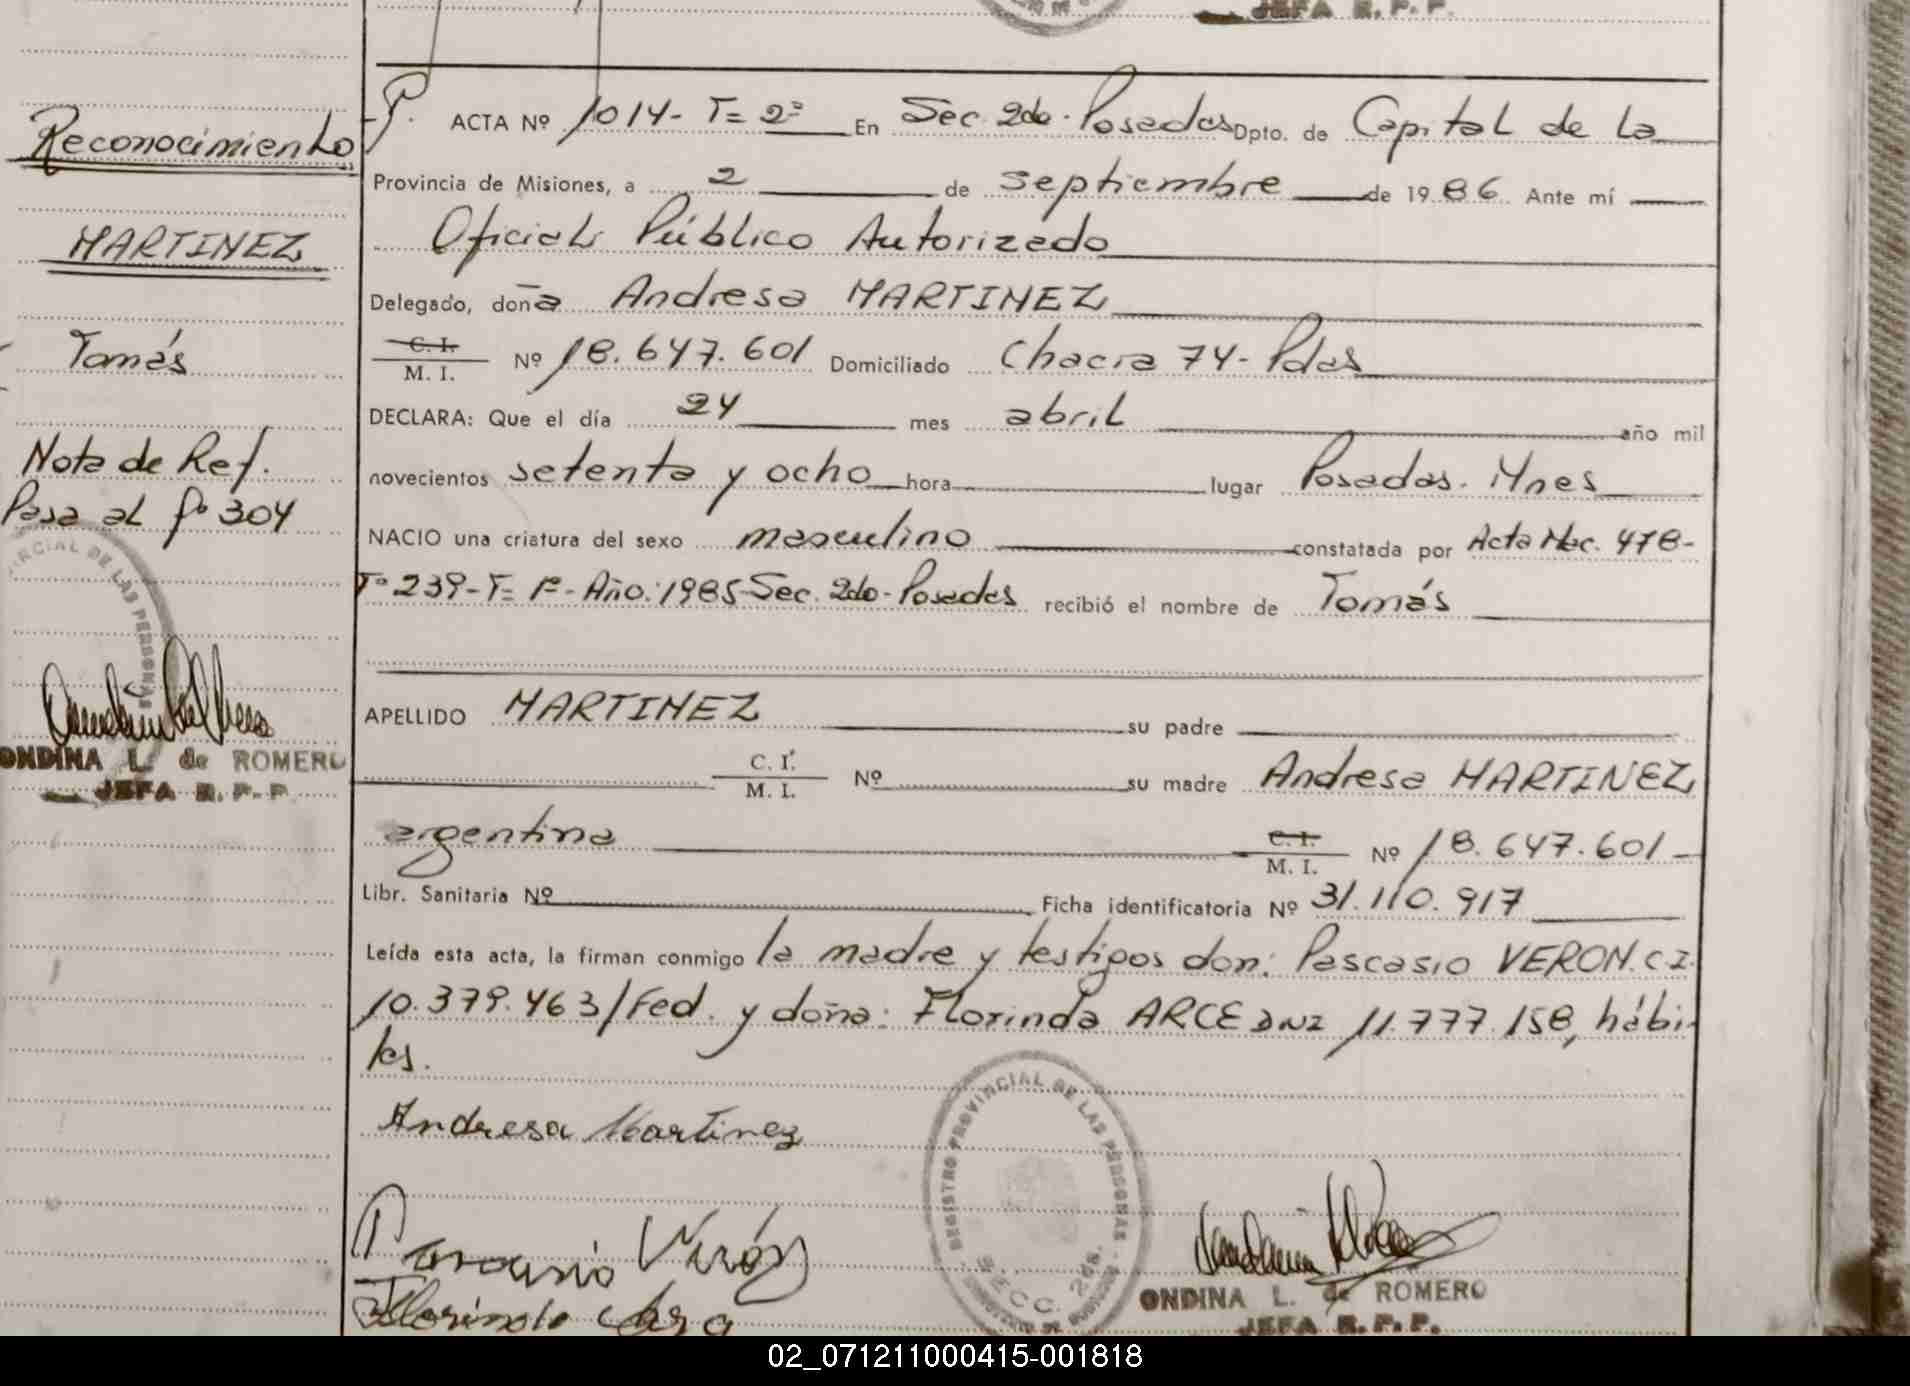 JEFA R. P. P.
Reconocimiento
MARTINEZ
Tomás
Nota de Ref.
Pasa al fº 304
RCIAL DE LAS PERSONAS
ONDINA L. de ROMERO
JEFA R. P. P.
ACTA Nº 1014- T= 2º En Sec. 2do. Posadas Dpto. de Capital de La
Provincia de Misiones, a 2 de septiembre de 1986. Ante mí
Oficial Público Autorizado
Delegado, doña Andresa MARTINEZ
C. I.
M. I. Nº 18.647.601 Domiciliado Chacra 74- Pdas
DECLARA: Que el día 24 mes abril año mil
novecientos setenta y ocho hora lugar Posadas. Mnes
NACIO una criatura del sexo masculino constatada por Acta Nac. 478-
Tº 239- T= 1º- Año: 1985- Sec. 2do- Posadas recibió el nombre de Tomás
APELLIDO MARTINEZ su padre
C. I.
M. I. Nº su madre Andresa MARTINEZ
argentina C. I.
M. I. Nº 18.647.601
Libr. Sanitaria Nº Ficha identificatoria Nº 31.110.917
Leída esta acta, la firman conmigo la madre y testigos don: Pascasio VERON. C I.
10.379.463/Fed. y doña: Florinda ARCE DNI 11.777.158, hábi-
les.
Andresa Martinez
REGISTRO PROVINCIAL DE LAS PERSONAS
SECC. 2da.
Pascasio Verón
Florinda Arce
ONDINA L. de ROMERO
JEFA R. P. P.
02_071211000415-001818